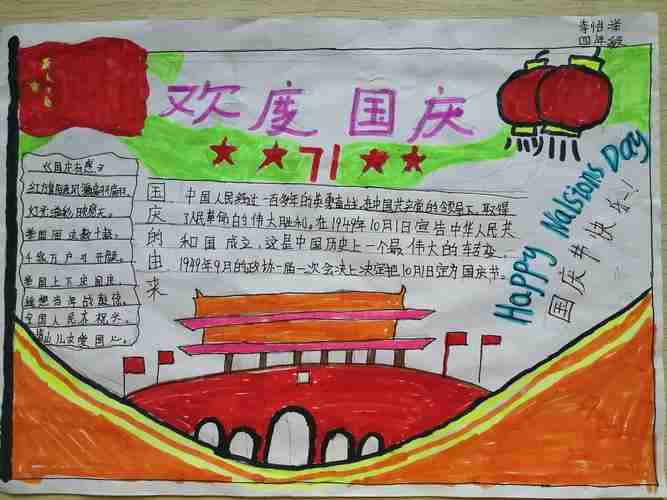 四年级
欢度 国庆
71
《国庆有感》
红旗随风飘
灯光
国
千家万户才开颜
举国上下庆国庆
遥想当年战鼓
全国人民齐祝
儿女爱国心
国庆的由来
中国人民经过一百多年的英勇奋斗,在中国共产党的领导下,取得
了人民革命的伟大胜利。在1949年10月1日宣告中华人民共
和国成立,这是中国历史上一个最伟大的转变。
1949年9月的政协一届一次会决上决定把10月1日定为国庆节。
Happy Nalsions Day
国庆节快乐!